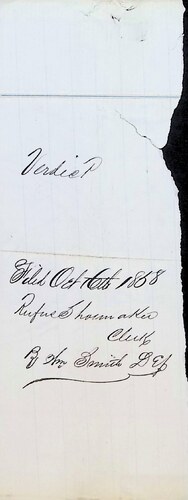 Verdict
Filed Oct 16th 1868
Rufus Shoemaker
Clerk
By Wm Smith Dep